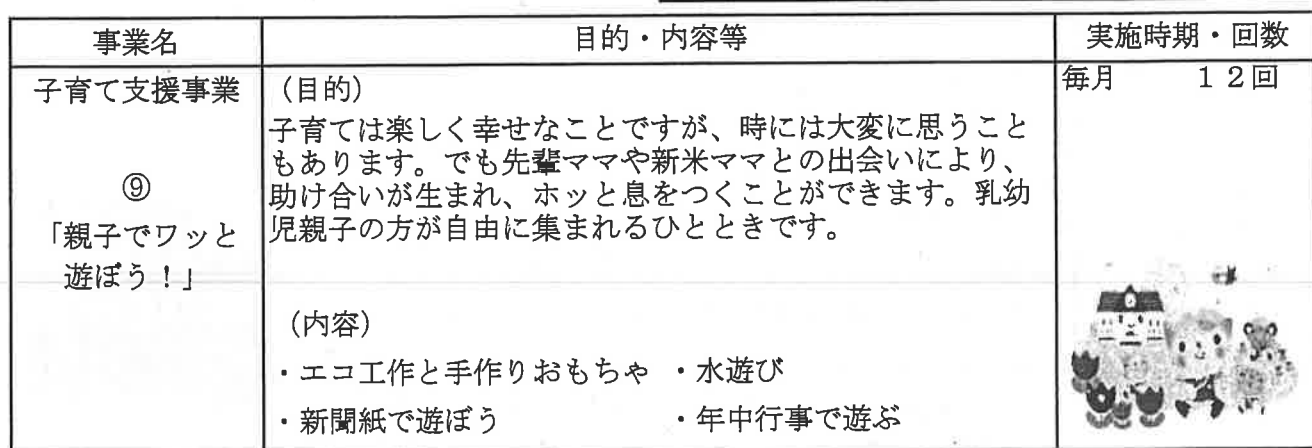 事業名
目的・内容等
実施時期・回数
子育て支援事業
⑨
「親子でワッと
遊ぼう！」
（目的）
子育ては楽しく幸せなことですが、時には大変に思うこと
もあります。でも先輩ママや新米ママとの出会いにより、
助け合いが生まれ、ホッと息をつくことができます。乳幼
児親子の方が自由に集まれるひとときです。
（内容）
・エコ工作と手作りおもちゃ ・水遊び
・新聞紙で遊ぼう ・年中行事で遊ぶ
毎月 １２回